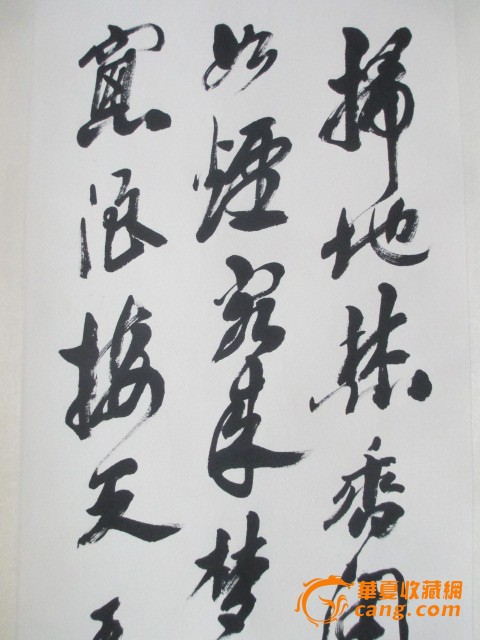 掃地焚香閉
如煙客来梦
窗浪接天
華夏收藏網
cang.com